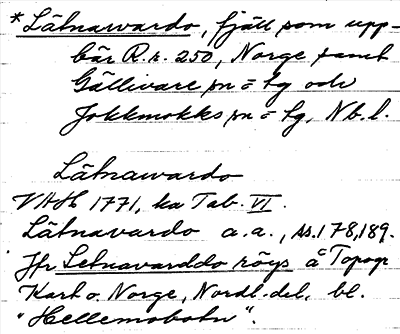 *Lätnawardo, fjäll som upp-
bär R.r. 250, Norge samt
Gällivare sn = tg och
Jokkmokks sn = tg, Nb. l.
Lätnawardo
VAH 1771, ka Tab. VI.
Lätnavardo a.a., ss. 178, 189.
Jfr Letnavarddo röys å Topogr
Kart o. Norge, Nordl. del, bl.
"Hellemobotn".